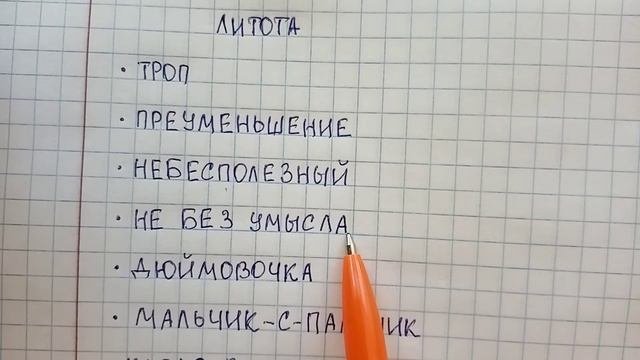 ЛИТОТА
• ТРОП
• ПРЕУМЕНЬШЕНИЕ
• НЕБЕСПОЛЕЗНЫЙ
• НЕ БЕЗ УМЫСЛА
• ДЮЙМОВОЧКА
• МАЛЬЧИК-С-ПАЛЬЧИК